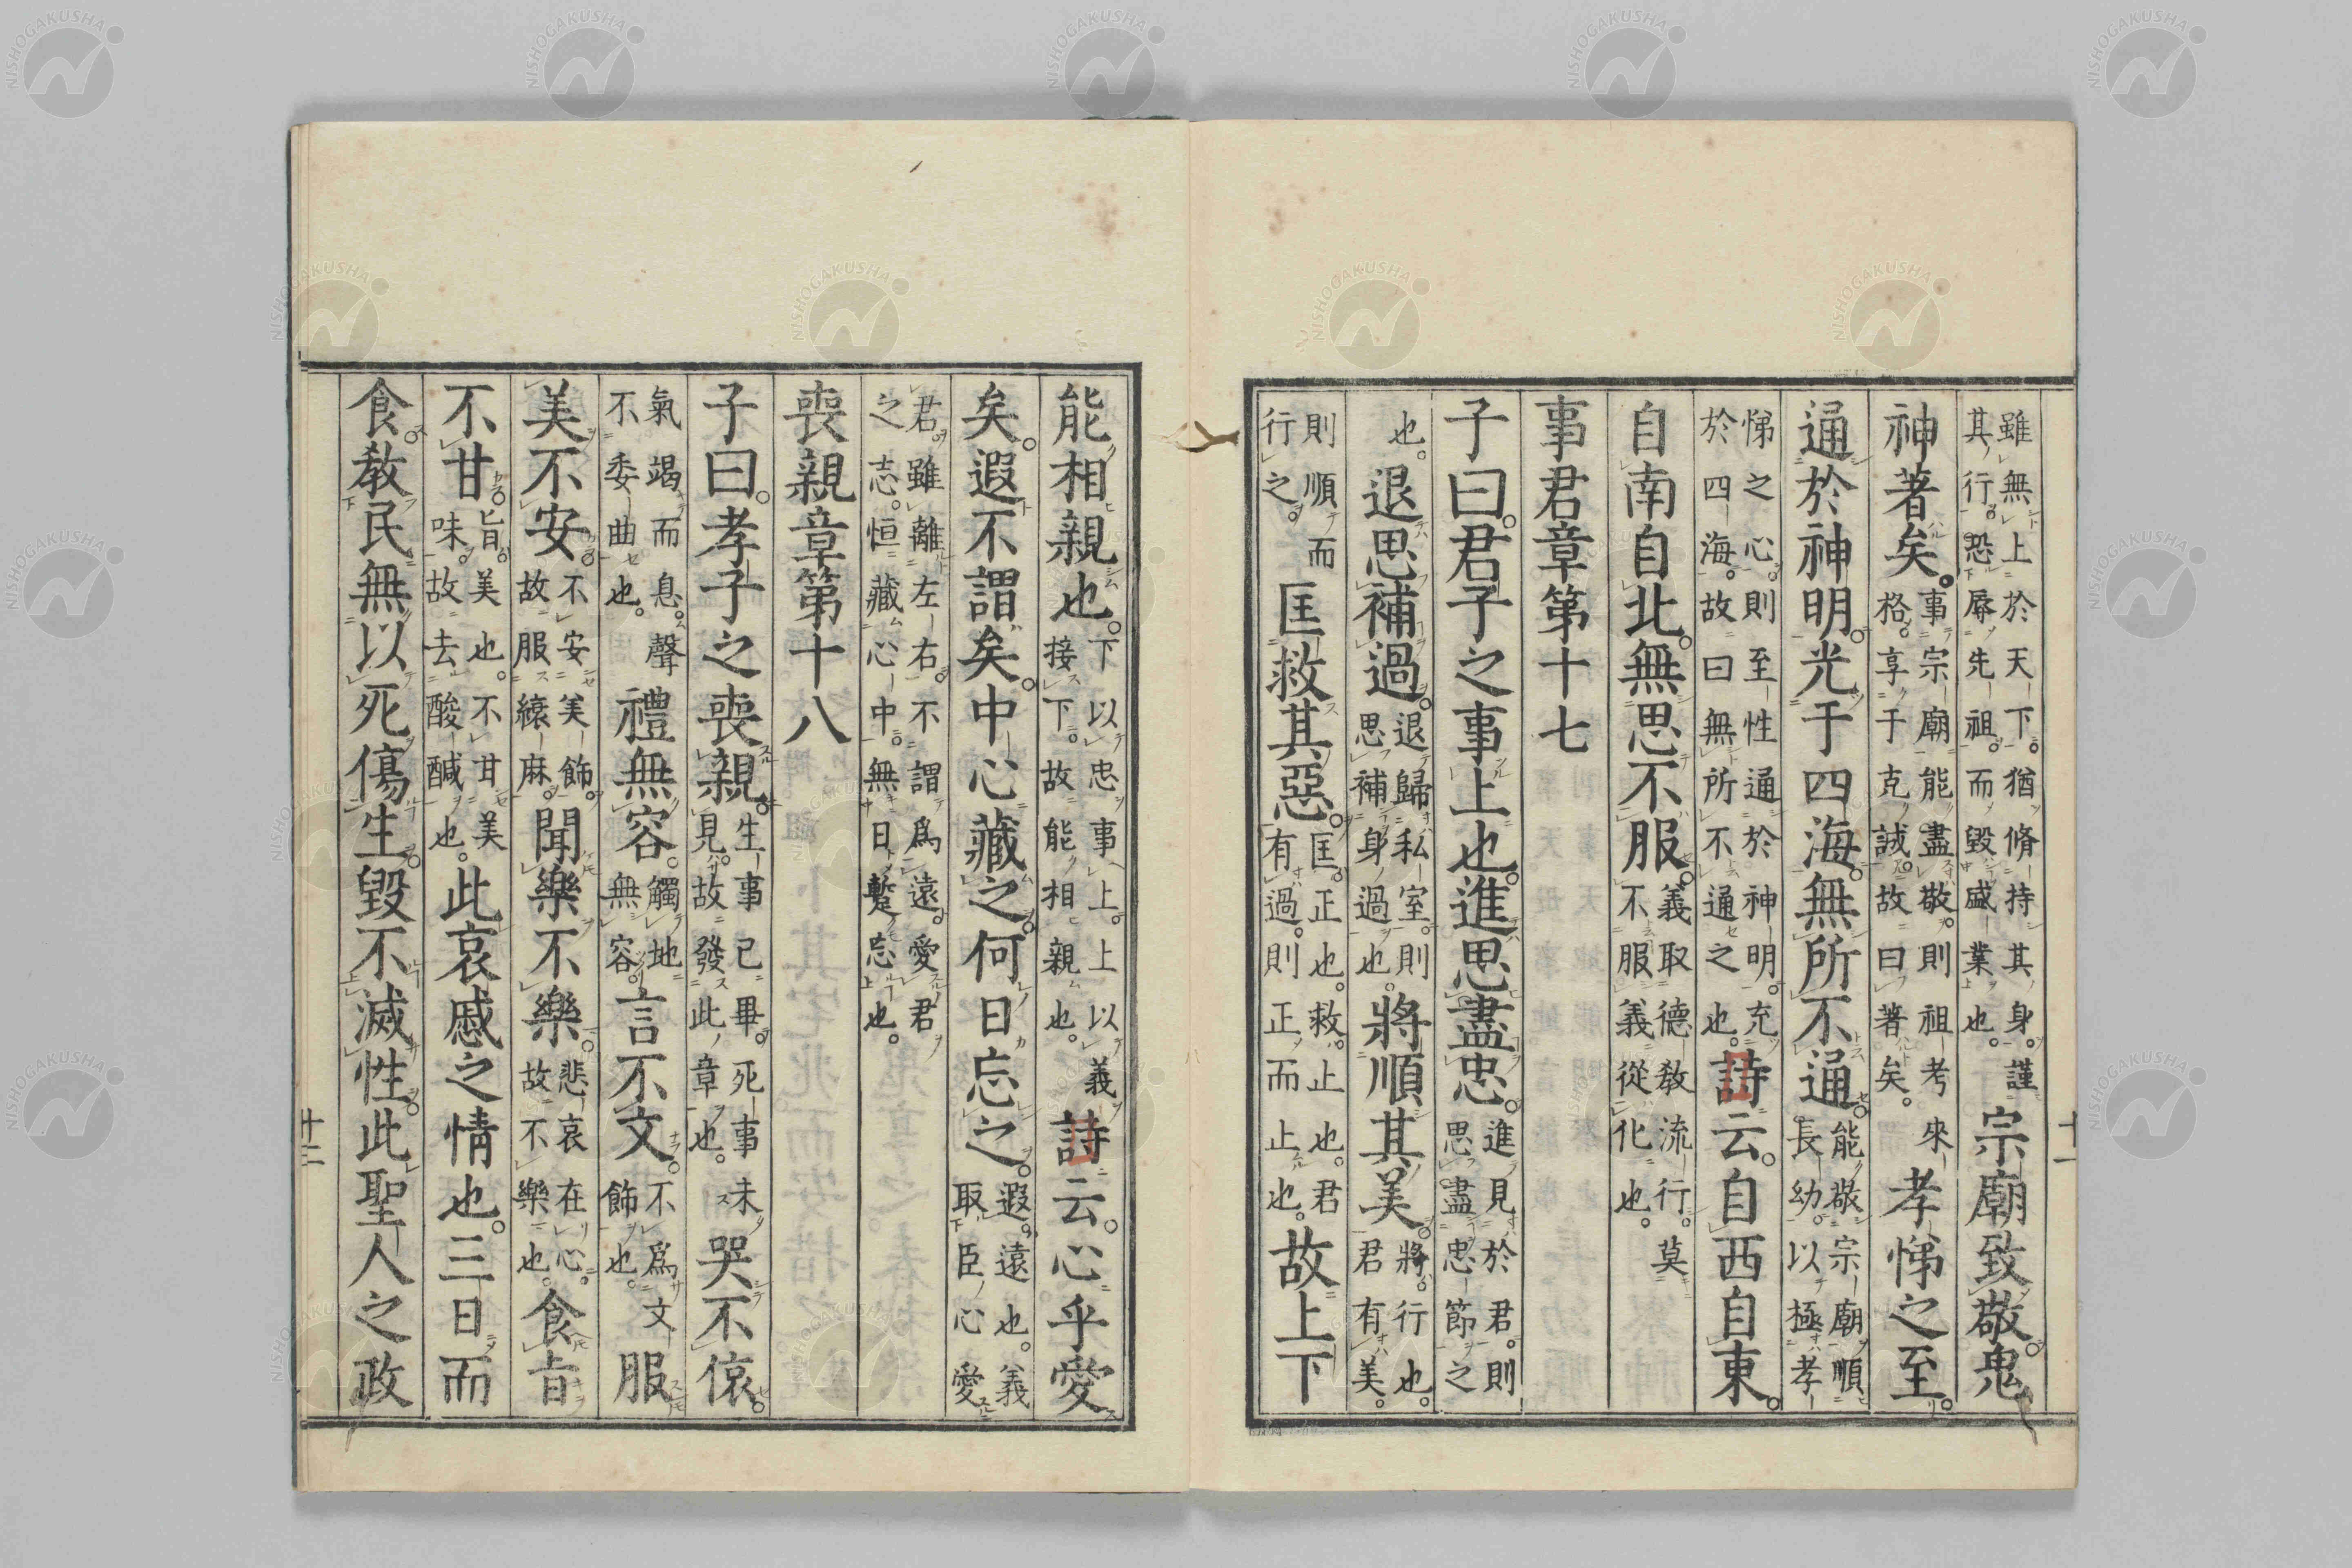 雖無上於天下。猶脩持其身。謹其行。恐辱先祖。而毀盛業也。宗廟致敬。鬼
神著矣。事宗廟能盡敬。則祖考來格。享于克誠。故曰著矣。孝悌之至。
通於神明。光于四海。無所不通。能敬宗廟順長幼。以極孝
悌之心。則至性通於神明。充於四海。故曰無所不通之也。詩云。自西自東。
自南自北。無思不服。義取德教流行。莫不服義從化也。
事君章第十七
子曰。君子之事上也。進思盡忠。進見於君。則思盡忠節之
也。退思補過。退歸私室。則思補身過也。將順其美。將。行也。君有美。
則順而行之。匡救其惡。匡。正也。救。止也。君有過。則正而止也。故上下
十一
能相親也。下以忠事上。上以義接下。故能相親也。詩云。心乎愛
矣。遐不謂矣。中心藏之。何日忘之。遐。遠也。義取臣心愛
君。雖離左右。不謂爲遠。愛君之志。恒藏心中。無日蹔忘也。
喪親章第十八
子曰。孝子之喪親。生事已畢。死事未見。故發此章也。哭不偯。
氣竭而息。聲不委曲也。禮無容。觸地無容。言不文。不爲文飾也。服
美不安。不安美飾。故服縗麻。聞樂不樂。悲哀在心。故不樂也。食旨
不甘。旨。美也。不甘美味。故去酸鹹也。此哀戚之情也。三日而
食。教民無以死傷生。毀不滅性。此聖人之政
十二
NISHOGAKUSHA